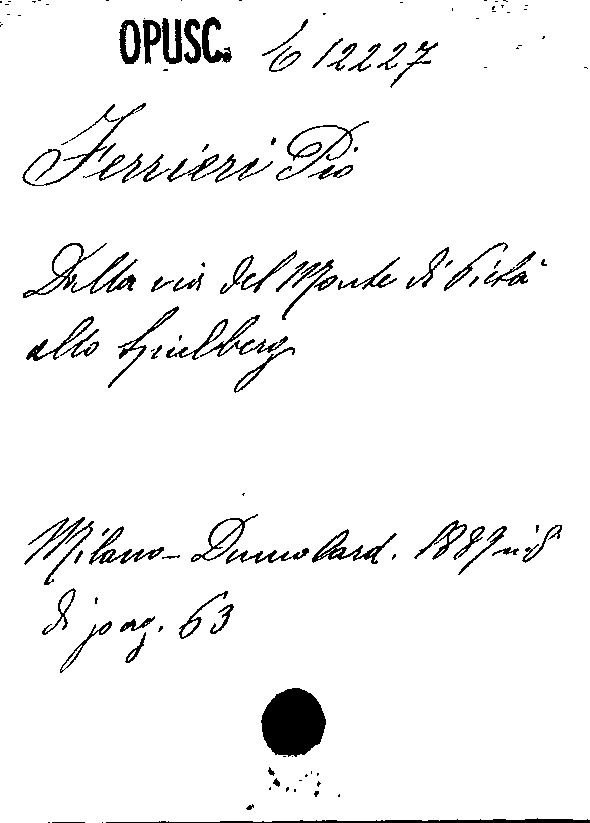 OPUSC. E 12227
Ferrieri Pio
Dalla via del Monte di Pietà
allo Spielberg
Milano - Dumolard. 1889 in 8
di pag. 63